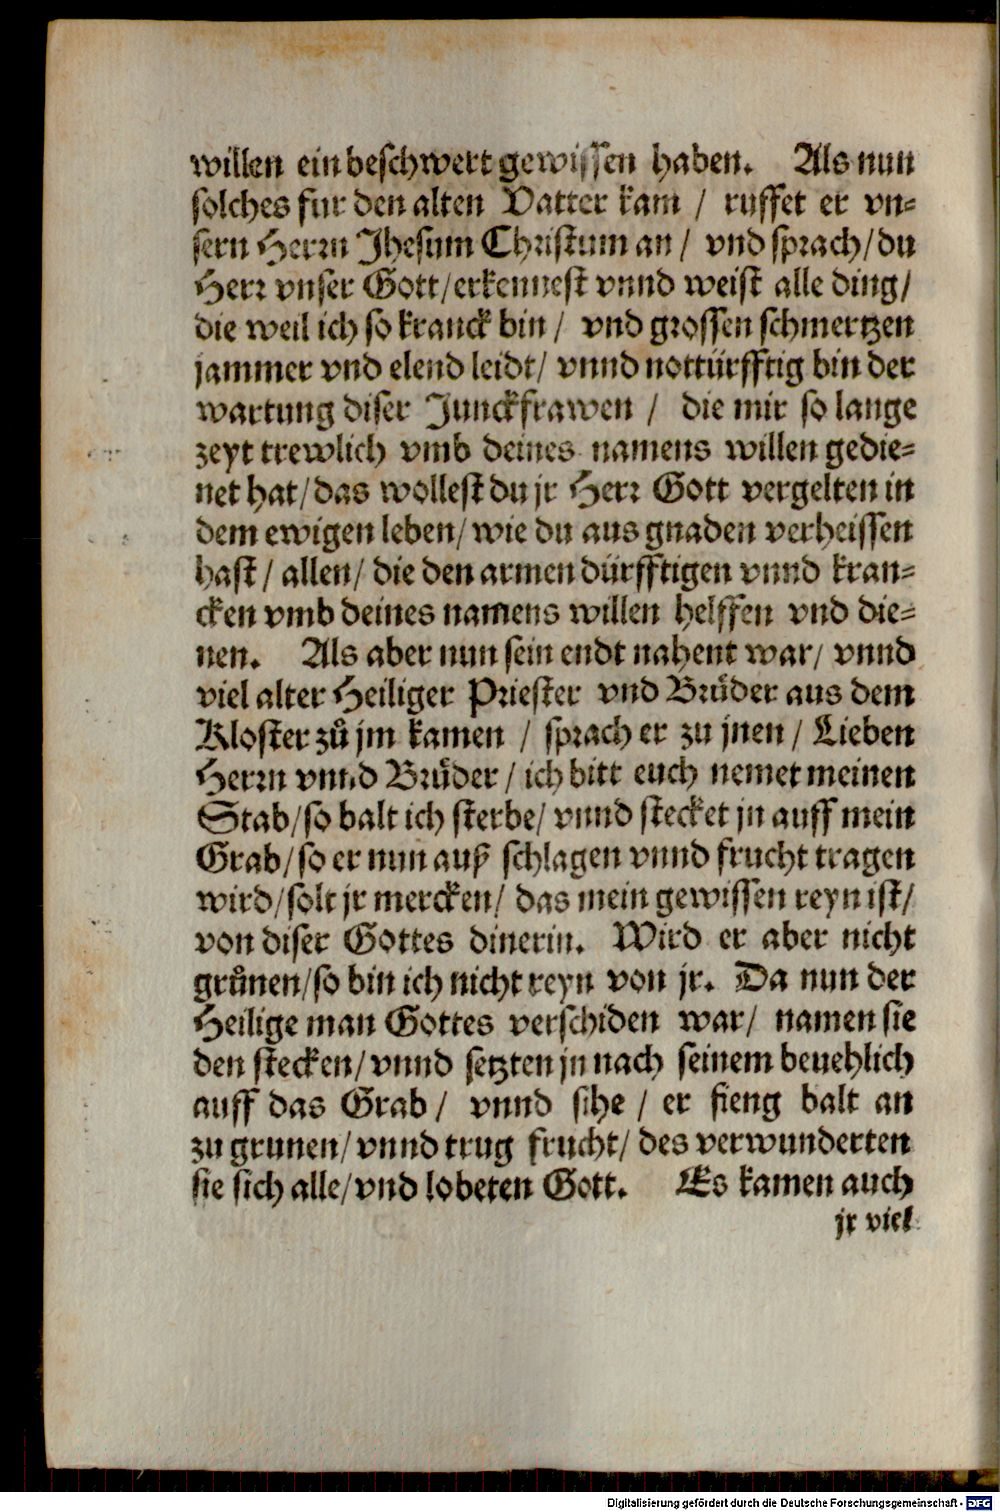 willen ein beschwert gewissen haben. Als nun
solches fur den alten Vatter kam / ruffet er vn=
sern Herrn Jhesum Christum an / vnd sprach/du
Herr vnser Gott/erkennest vnnd weist alle ding/
die weil ich so kranck bin / vnd grossen schmertzen
jammer vnd elend leidt/ vnnd nottürfftig bin der
wartung diser Junckfrawen / die mir so lange
zeyt trewlich vmb deines namens willen gedie=
net hat/das wollest du jr Herr Gott vergelten in
dem ewigen leben/wie du aus gnaden verheissen
hast / allen/ die den armen dürfftigen vnnd kran=
cken vmb deines namens willen helffen vnd die=
nen. Als aber nun sein endt nahent war/ vnnd
viel alter Heiliger Priester vnd Brüder aus dem
Kloster zů jm kamen / sprach er zu jnen / Lieben
Herrn vnnd Brüder / ich bitt euch nemet meinen
Stab/so balt ich sterbe/ vnnd stecket jn auff mein
Grab/so er nun auß schlagen vnnd frucht tragen
wird/solt jr mercken/ das mein gewissen reyn ist/
von diser Gottes dinerin. Wird er aber nicht
grůnen/so bin ich nicht reyn von jr. Da nun der
Heilige man Gottes verschiden war/ namen sie
den stecken/vnnd setzten jn nach seinem beuehlich
auff das Grab / vnnd sihe / er fieng balt an
zu grunen/vnnd trug frucht/ des verwunderten
sie sich alle/vnd lobeten Gott. Es kamen auch
jr viel
Digitalisierung gefördert durch die Deutsche Forschungsgemeinschaft - DFG